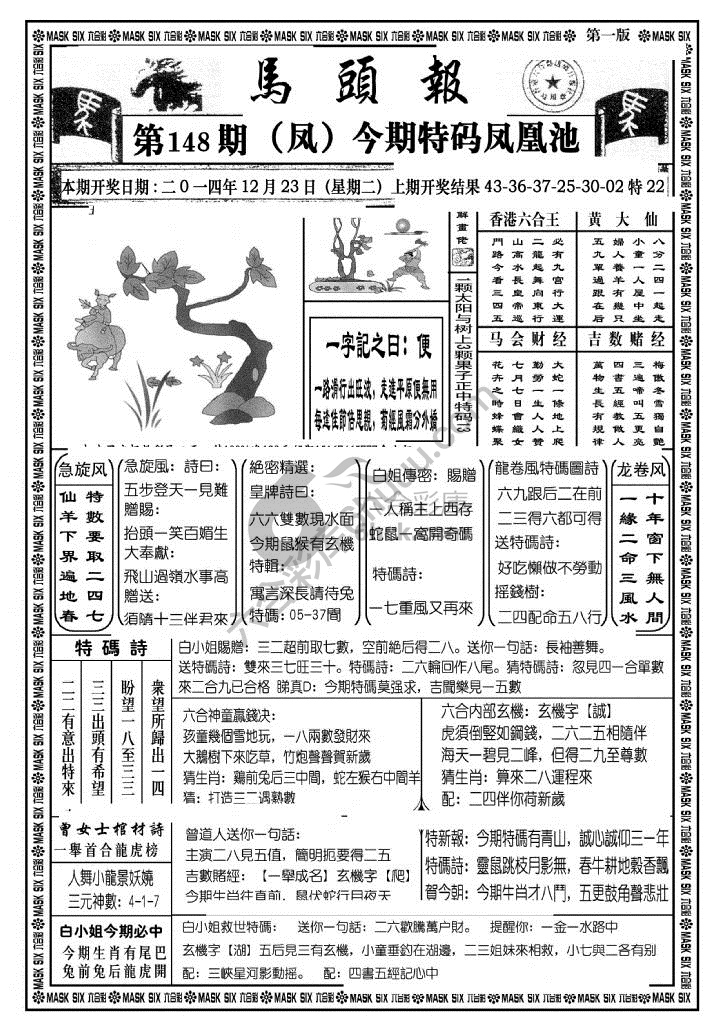 MASK SIX 六合彩
第一版
馬頭報
第148期（凤）今期特码凤凰池
本期开奖日期：二0一四年12月23日（星期二）上期开奖结果 43-36-37-25-30-02 特 22
解畫佬
一颗太阳与树上3颗果子正中特码13
一字記之曰：便
一路滑行出旺波，走進平原便無用
每逢佳節倍思親，菊極風霜分外橋
香港六合王
必有九宮行大運
二龍起舞向東行
山高水長皇帝巡
門路今看三四五
黄大仙
八分二四一起走
小童一人屋中坐
婦人養羊有幾只
五九單過跟在后
马会财经
大蛇一條地上爬
勤勞一生人人贊
七月七日會織女
花卉之時蜂蝶聚
吉数赌经
梅傲冬雪獨自艷
三遍啼叫五更亮
四書五經教做人
萬物生長有規律
急旋风
特數要取二四七
仙羊下界遍地春
急旋風：詩曰：
五步登天一見難
贈賜：
抬頭一笑百媚生
大奉獻：
飛山過嶺水事高
贈送：
須隨十三伴君來
絶密精選：
皇牌詩曰：
六六雙數現水面
今期鼠猴有玄機
特輯：
寓言深長請待兔
特碼：05-37間
白姐傳密：賜贈
一人稱主上西存
蛇鼠一窩開奇碼
特碼詩：
一七重風又再來
龍卷風特碼圖詩
六九跟后二在前
二三得六都可得
送特碼詩：
好吃懶做不勞動
摇錢樹：
二四配命五八行
龙卷风
十年窗下無人間
一緣二命三風水
特碼詩
衆望所歸出一四
盼望一八至三三
三三出頭有希望
二二有意出特來
白小姐賜贈：三二超前取七數，空前絶后得二八。送你一句話：長袖善舞。
送特碼詩：雙來三七旺三十。特碼詩：二六輪回作八尾。猜特碼詩：忽見四一合單數
來二合九已合格 睇真D：今期特碼莫强求，吉聞樂見一五數
六合神童贏錢决：
孩童幾個雪地玩，一八兩數發財來
大鵝樹下來吃草，竹炮聲聲賀新歲
猜生肖：鷄前兔后三中間，蛇左猴右中間羊
猜：打造三二遇熱數
六合内部玄機：玄機字【誠】
虎須倒竪如鋼鐵，二六二五相隨伴
海天一碧見二峰，但得二九至尊數
猜生肖：算來二八運程來
配：二四伴你荷新歲
曾女士棺材詩
一舉首合龍虎榜
人舞小龍景妖嬈
三元神數：4-1-7
曾道人送你一句話：
主演二八見五值，簡明扼要得二五
吉數賭經：【一舉成名】玄機字【爬】
今期牛肖往直前，鼠伏蛇行月夜天
特新報：今期特碼有青山，誠心誠仰三一年
特碼詩：靈鼠跳枝月影無，春牛耕地穀香飄
賀今朝：今期生肖才八鬥，五更鼓角聲悲壯
白小姐今期必中
今期生肖有尾巴
兔前兔后龍虎開
白小姐救世特碼： 送你一句話：二六歡騰萬户財。 提醒你：一金一水路中
玄機字【湖】五后見三有玄機，小童垂釣在湖邊，二三姐妹來相救，小七與二各有别
配：三峽星河影動摇。 配：四書五經記心中